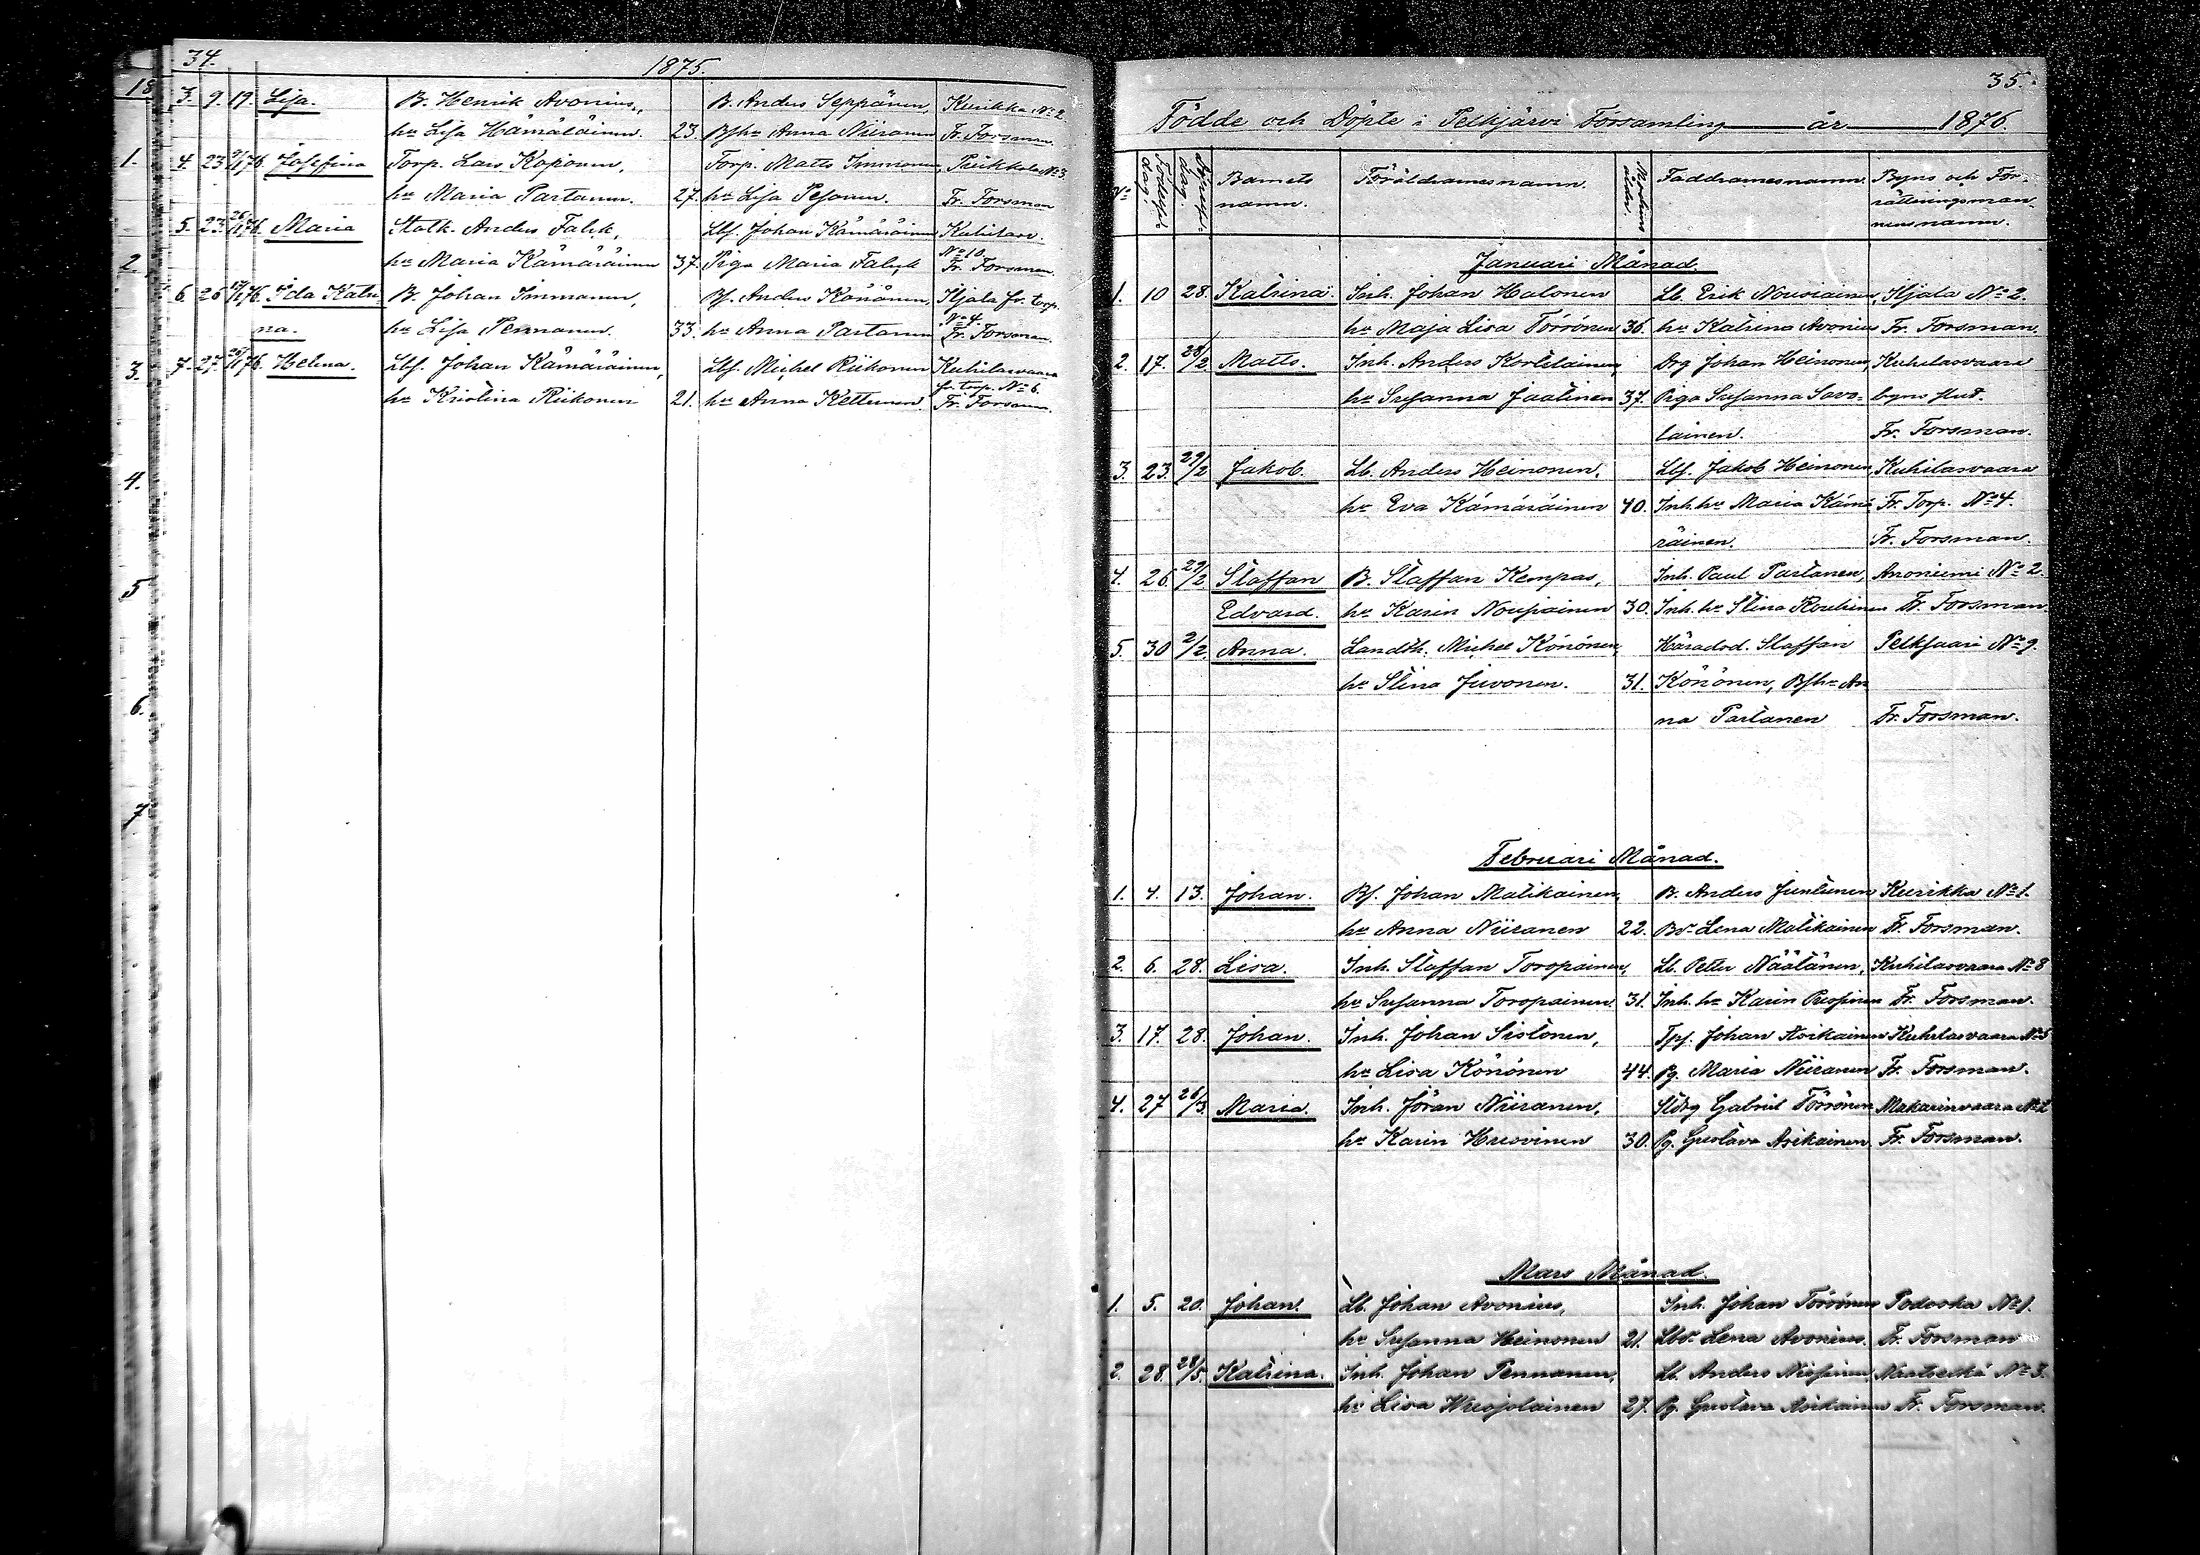 34.
1875.
3. 9. 19. Lisa. B. Henrik Avonius, B. Anders Seppänen, Kurikka No 2.
hu Lisa Hämäläinen. 23. Bfhu Anna Niiranen Fr. Forsman
4. 23 /76. Josefina Torp. Lars Koponen, Torp. Matts Immonen, Puikkola No 3.
hu Maria Partanen. 27. hu Lisa Pesonen. Fr. Forsman
5. 23 /76. Maria Statk. Anders Falck, Lbf. Johan Kämäräinen
hu Maria Kämäräinen 37. Piga Maria Falck No 10. Fr. Forsman.
6. 26 /76. Ida Katri- B. Johan Immonen, Bf. Anders Könönen, Iljala fr. torp. No 4.
na. hu Lisa Pennanen. 33. hu Anna Partanen Fr. Forsman.
7. 27. /76. Helena. Lbf. Johan Kämäräinen, Lbf. Michel Riikonen Kuhilasvaara
hu Kristina Riikonen 21. hu Anna Kettunen. fr. torp. No 6. Fr. Forsman.
18
1.
2.
3.
4.
5
6.
7
35.
Födde och Döpte i Pelkjärvi Församling år 1876.
No Födelse dag. Döpelse dag. Barnets Föräldrarnes namn. Modrens ålder. Faddrarnes namn. Byns och För-
namn. rättningsman-
nens namn.
Januari Månad.
1. 10 28. Katrina. Inh. Johan Halonen Lb. Erik Nousiainen, Iljala No 2.
hu Maja Lisa Törrönen 36. hu Katrina Avonius Fr. Forsman.
2. 17. 28/2 Matts. Inh. Anders Kortelainen, Drg Johan Heinonen, Kuhilasvaara
hu Susanna Jaatinen 37. Piga Susanna Savo- byns slut.
lainen. Fr. Forsman.
3. 23. 29/2 Jakob. Lb. Anders Heinonen. Lbf. Jakob Heinonen, Kuhilasvaara
hu Eva Kämäräinen 40. Inh. hu Maria Kämä- Fr. Torp. No 4.
räinen. Fr. Forsman.
4. 26. 29/2 Staffan B. Staffan Kempas, Inh. Paul Partanen, Anoniemi No 2.
Edvard. hu Karin Noupiainen 30. Inh. hu Stina Rouhinen Fr. Forsman.
5. 30 2/2. Anna. Landth. Michel Könönen, Häradsd. Staffan Pelksaari No 9.
hu Stina Juvonen. 31. Könönen, Bfhu An
na Partanen Fr. Forsman.
Februari Månad.
1. 4. 13. Johan. Bf. Johan Matikainen, B. Anders Juntunen Kurikka No 1.
hu Anna Niiranen 22. Bdr Lena Matikainen Fr. Forsman.
2. 6. 28. Lisa. Inh. Staffan Toropainen, Lb. Petter Näätänen, Kuhilasvaara No 8
hu Susanna Toropainen. 31. Inh. hu Karin Fr. Forsman.
3. 17. 28. Johan. Inh. Johan Sistonen, Tpf. Johan Asikainen Kuhilasvaara No 5
hu Lisa Könönen 44. Pg. Maria Niiranen Fr. Forsman.
4. 27 26/3. Maria. Inh. Jöran Niiranen, Gabriel Törrönen Makarinvaara No 2
hu Karin Husvinen 30. Pg. Gustava Asikainen. Fr. Forsman.
Mars Månad.
1. 5. 20. Johan. Lb. Johan Avonius, Inh. Johan Törrönen Podoska No 1.
hu Susanna Heinonen 21. Lbdr Lena Avonius. Fr. Forsman
2. 28. 28/5. Katrina. Inh. Johan Pennanen, Lb. Anders No 3.
hu Lisa Kuojolainen 27. Pg. Gustava Asikainen Fr. Forsman.